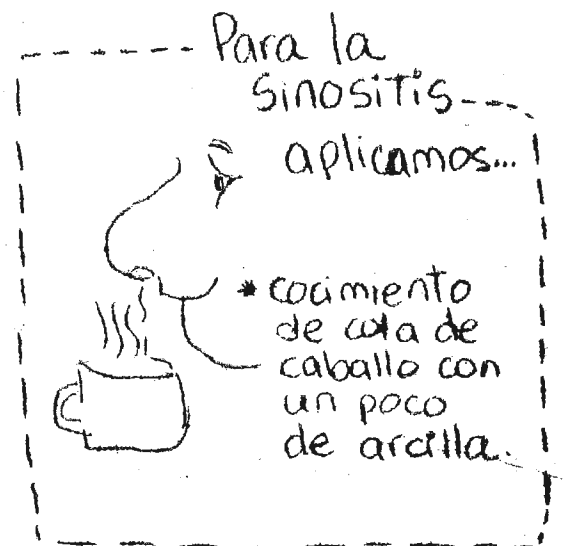 Para la
sinositis
aplicamos...
* cocimiento
de cola de
caballo con
un poco
de arcilla.